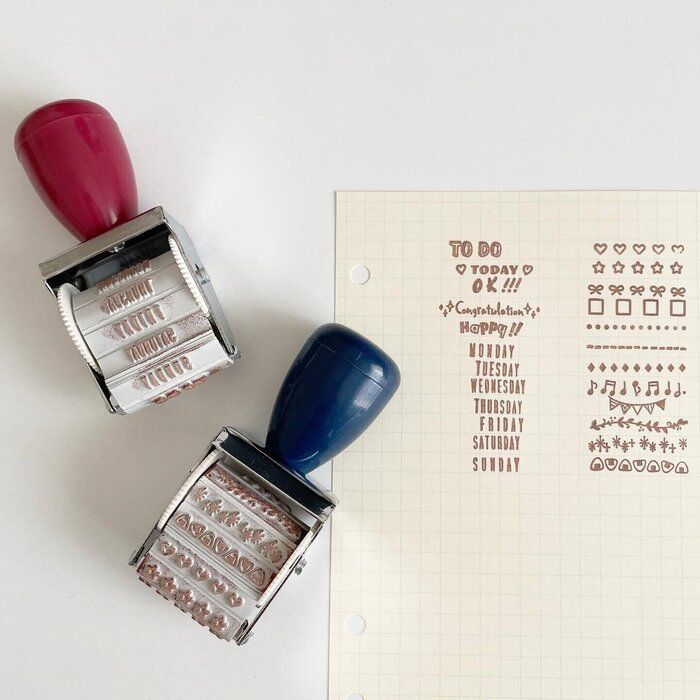 TO DO
♡ TODAY ♡
OK!!!
Congratulation
HAPPY!!
MONDAY
TUESDAY
WEDNESDAY
THURSDAY
FRIDAY
SATURDAY
SUNDAY